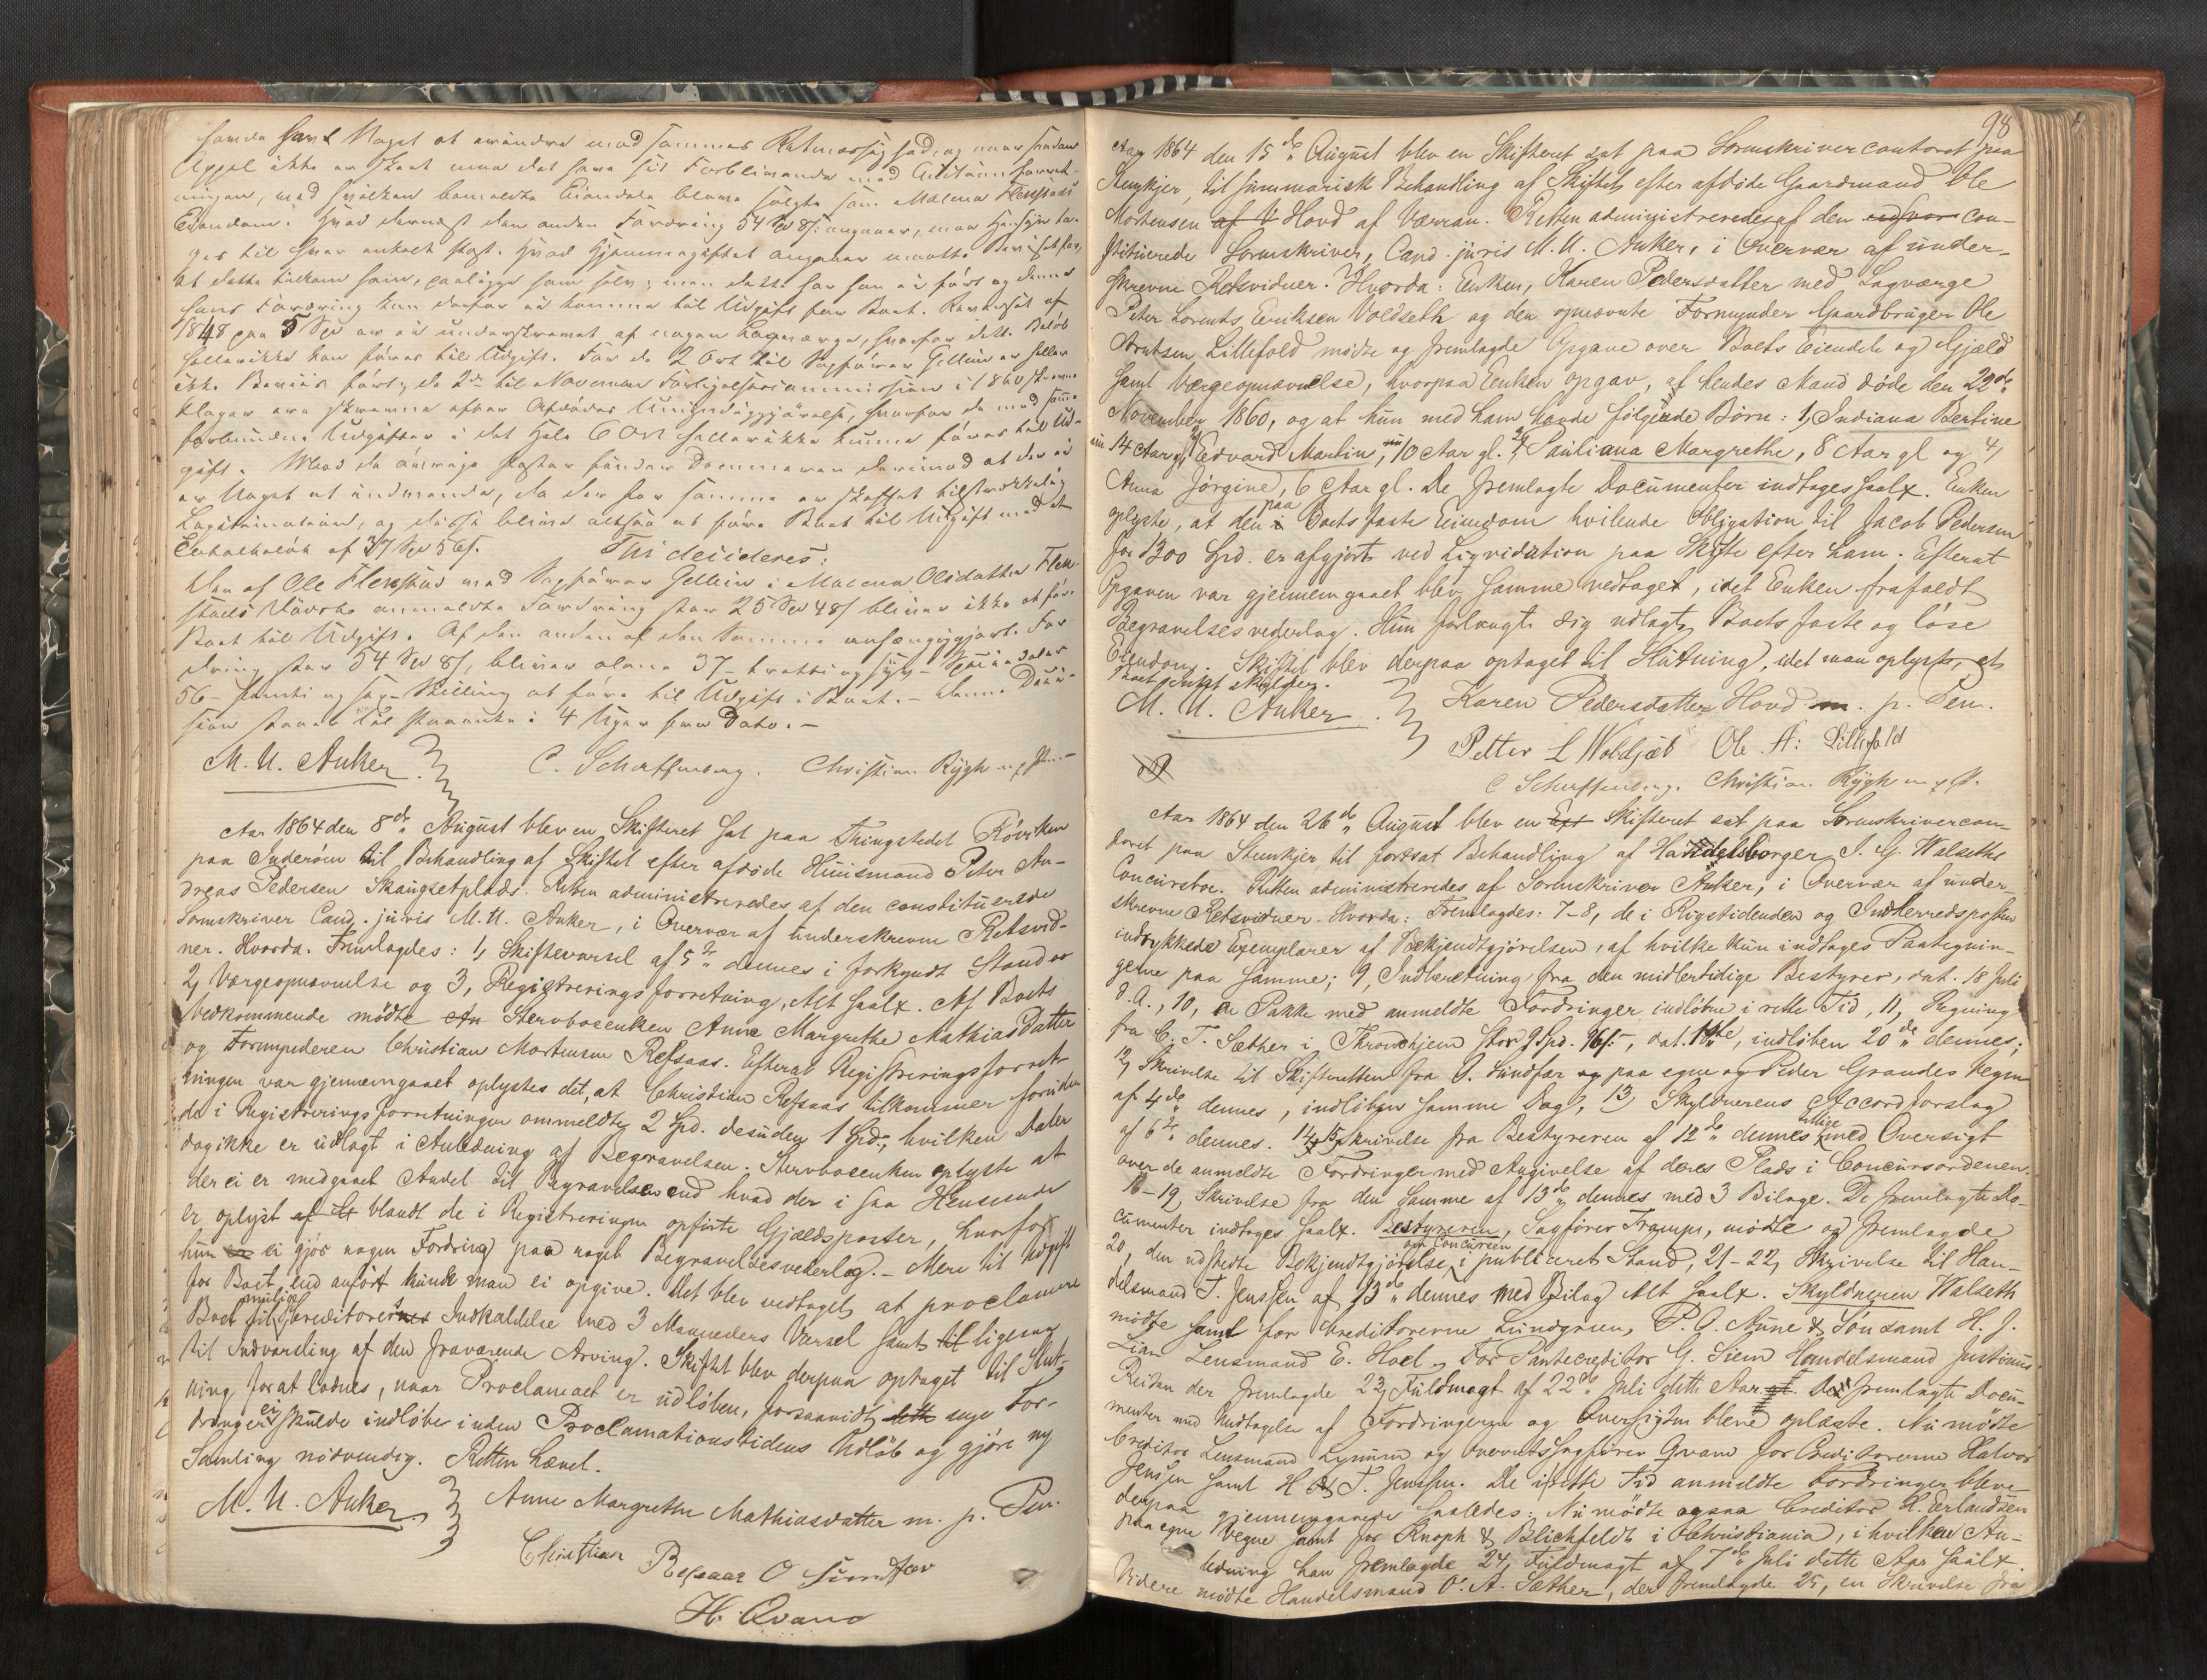 samme havt Noget at erindre mod sammes Retmæssighed, og naar saadan
Appel ikke er skeet maa det have sit Forblivende med Auctionsforret-
ningen, ved hvilken bemeldte Eiendele bleve solgte som Malena Flekstads
Eiendom. Hvad dernæst den anden Fordring 54 Spd 8 s: angaaer, maa Hensyn ta-
ges til hver enkelt Post. Hvad Hjemmegiftet angaaer
at dette
hans Fordring kan derfor ei komme til Udgift for Boet. Beviset af
1848 paa 5 Spd er ei underskrevet af nogen Laugværge, hvorfor dette Beløb
hellerikke kan føres til Udgift. For de 2 Ort til Sagfører Gellein er heller
ikke Beviis ført; de 2de til November Forligelsescommission i 1860 skrevne
Klager ere skrevne efter Afdødes Umyndiggjørelse, hvorfor de med samme
forbundne Udgifter i det Hele 6 Ort hellerikke kunne føres til Ud-
gift. Mod de øvrige Poster finder Dommeren derimod at der ei
er Noget at indvende, da der for samme er skaffet tilstrækkelig
Legitimation, og disse blive altsaa at føre Boet til Udgift med et
Totalbeløb af 37 Spd 56 s.
Thi decideres:
Den af Ole Flekstad med Sagfører Gellein i Malena Olsdatter Flek-
stads Dødsbo anmeldte Fordring stor 25 Spd 48 s bliver ikke at føre
Boet til Udgift. Af den anden af den Samme anhængiggjorte For-
dring stor 54 Spd 8 s, bliver alene 37 - tretti og syv - Speciedaler
56 - femti og sex - Skilling at føre til Udgift i Boet. - Denne Deci-
sion staaer til Paaanke i 4 Uger fra Dato. -
M. U. Anker. C. Scheffenberg. Christian Rygh m. p. Pen
Aar 1864 den 8de August blev en Skifteret sat paa Thingstedet Röviken
paa Inderöen til Behandling af Skiftet efter afdøde Huusmand Peter An-
dreas Pedersen Skaugsetplads. Retten administreredes af den constituerede
Sorenskriver Cand. juris M. U. Anker, i Overvær af underskrevne Retsvid-
ner. Hvorda: Fremlagdes: 1, Skiftevarsel af 5te dennes i forkyndt Stand og
2, Værgeopnævnelse og 3, Registreringsforretning, Alt saalx. Af Boets
Vedkommende mødte An Stervboeenken Anne Margrethe Mathiasdatter
og Formynderen Christian Mortensen Refsaas. Efterat Registreringsforret-
ningen var gjennemgaaet oplystes det, at Christian Refsaas tilkommer foruden
de i Registreringsforretningen ommeldte 2 Spd. desuden 1 Spd:, hvilken Daler
dog ikke er udlagt i Anledning af Begravelsen. Stervboeenken oplyste at
der ei er medgaaet Andet til Begravelsen end hvad der i saa Henseende
er oplyst af de blandt de i Registreringen opførte Gjældsposter, hvorfor
hun er ei gjør nogen Fordring paa noget Begravelsesvederlag. - Mere til Udgift
for Boet, end anført kunde man ei opgive. Det blev vedtaget at proclamere
Boet til mulige Creditorernes Indkaldelse med 3 Maaneders Varsel samt til ligesaa
til Indvarsling af den fraværende Arving. Skiftet blev derpaa optaget til Slut-
ning for at lodnes, naar Proclamaet er udløben, forsaavidt dette nye For-
dringer ei skulde indløbe inden Proclamationstidens Udløb og gjøre ny
Samling nødvendig. Retten hævet.
M. U. Anker Anne Margrethe Mathiasdatter m. p. Pen.
Christian Refsaas O Sundfær
H. Qvam
98
Aar 1864 den 15de August blev en Skifteret sat paa Sorenskrivercontoret paa
Stenkjer, til summarisk Behandling af Skiftet efter afdøde Gaardmand Ole
Mortensen af V Hovd af Værran. Retten administreredes af den edsvor con-
stituerede Sorenskriver, Cand. juris M. U. Anker, i Overvær af under-
skrevne Retsvidner. Hvorda: Enken, Karen Pedersdatter med Lagværge
Peter Lorents Eeriksen Voldseth og den opnævnte Formynder Gaardbruger Ole
Arntsen Lillefold mødte og fremlagde Opgave over Boets Eiendele og Gjæld
samt Værgeopnævnelse, hvorpaa Enken opgav, at hendes Mand døde den 22de
November 1860, og at hun med ham havde følgende Børn: 1, Indiana Bertine
nu 14 Aar gl, 2, Edvard Martin, nu 10 Aar gl. 3, Pauliana Margrethe, 8 Aar gl og 4,
Anna Jørgine, 6 Aar gl. De fremlagte Documenter indtages saalx. Enken
oplyste, at den i paa Boets faste Eiendom hvilende Obligation til Jacob Pedersen
for 1300 Spd. er afgjort ved Liqvidation paa Skifte efter ham. Efterat
Opgaven var gjennemgaaet blev samme vedtaget, idet Enken frafaldt
Begravelsesvederlag. Hun forlangte sig udlagt Boets faste og løse
Eiendom. Skiftet blev derpaa optaget til Slutning, idet man oplyste, at
Boet Intet skylder.
M. U. Anker. Karen Pedersdatter Hovd m. p. Pen.
Petter L Woldsæt Ole A: Lillefold
C Scheffenberg. Christian Rygh m. p. P.
Aar 1864 den 26de August blev en Ext Skifteret sat paa Sorenskrivercon-
toret paa Steinkjer til fortsat Behandling af Handelsborger I. G. Walseths
Concursboe. Retten administreredes af Sorenskriver Anker, i Overvær af under-
skrevne Retsvidner. Hvorda: Fremlagdes: 7-8, de i Rigstidenden og Indherredsposten
indrykkede Exemplarer af Bekjendtgjørelsen, af hvilke kun indtages Paategnin-
gerne paa samme; 9, Indberetning fra den midlertidige Bestyrer, dat. 18 Juli
d. A., 10, en Pakke med anmeldte Fordringer indløbne i rette Tid, 11, Regning
fra C. T. Sæther i Throndhjem stor 9 Spd. 96 s:, dat. 18de, indløben 20de dennes;
12, Skrivelse til Skifteretten fra O. Sundfær og paa egne og Peder Grandes Vegne
af 4de dennes, indløben samme Dag, 13, Skyldnerens Accordforslag
af 6te dennes. 14, 15, Skrivelse fra Bestyreren af 12te dennes tillige med Oversigt
over de anmeldte Fordringer med Angivelse af deres Plads i Concursordenen.
16-19, Skrivelse fra den Samme af 13de dennes med 3 Bilage. De fremlagte Do-
cumenter indtages saalx. Bestyreren, Sagfører Trampe, mødte og fremlagde
20, den udstedte Bekjendtgjørelse om Concursen i publiceret Stand, 21-22, Skrivelse til Han-
delsmand T. Jenssen af 13de dennes med Bilag Alt saalx. Skyldneren Walseth
mødte samt for Creditorerne Lundgreen, P. O. Aune & Søn samt H. J.
Lian Lensmand E. Hoel. For Pantecreditor G. Siem Handelsmand Justinus
Reitan der fremlagde 23, Fuldmagt af 22de Juli dette Aar. De fremlagte Docu-
menter med Undtagelse af Fordringerne og Oversigten bleve oplæste. Nu mødte
Creditor Lensmand Lynum og Overretssagfører Qvam for Creditorerne Halvor
Jenssen samt H & T. Jenssen. De i rette Tid anmeldte Fordringer bleve
derpaa gjennemgaaede saaledes: Nu mødte ogsaa Creditor H. Erlandsen
paa egne Vegne samt for Knoph & Blichfeldt i Christiania, i hvilken An-
ledning han fremlagde 24, Fuldmagt af 7de Juli dette Aar saalx.
Videre mødte Handelsmand O. A. Sæther, der fremlagde 25, en Skrivelse fra